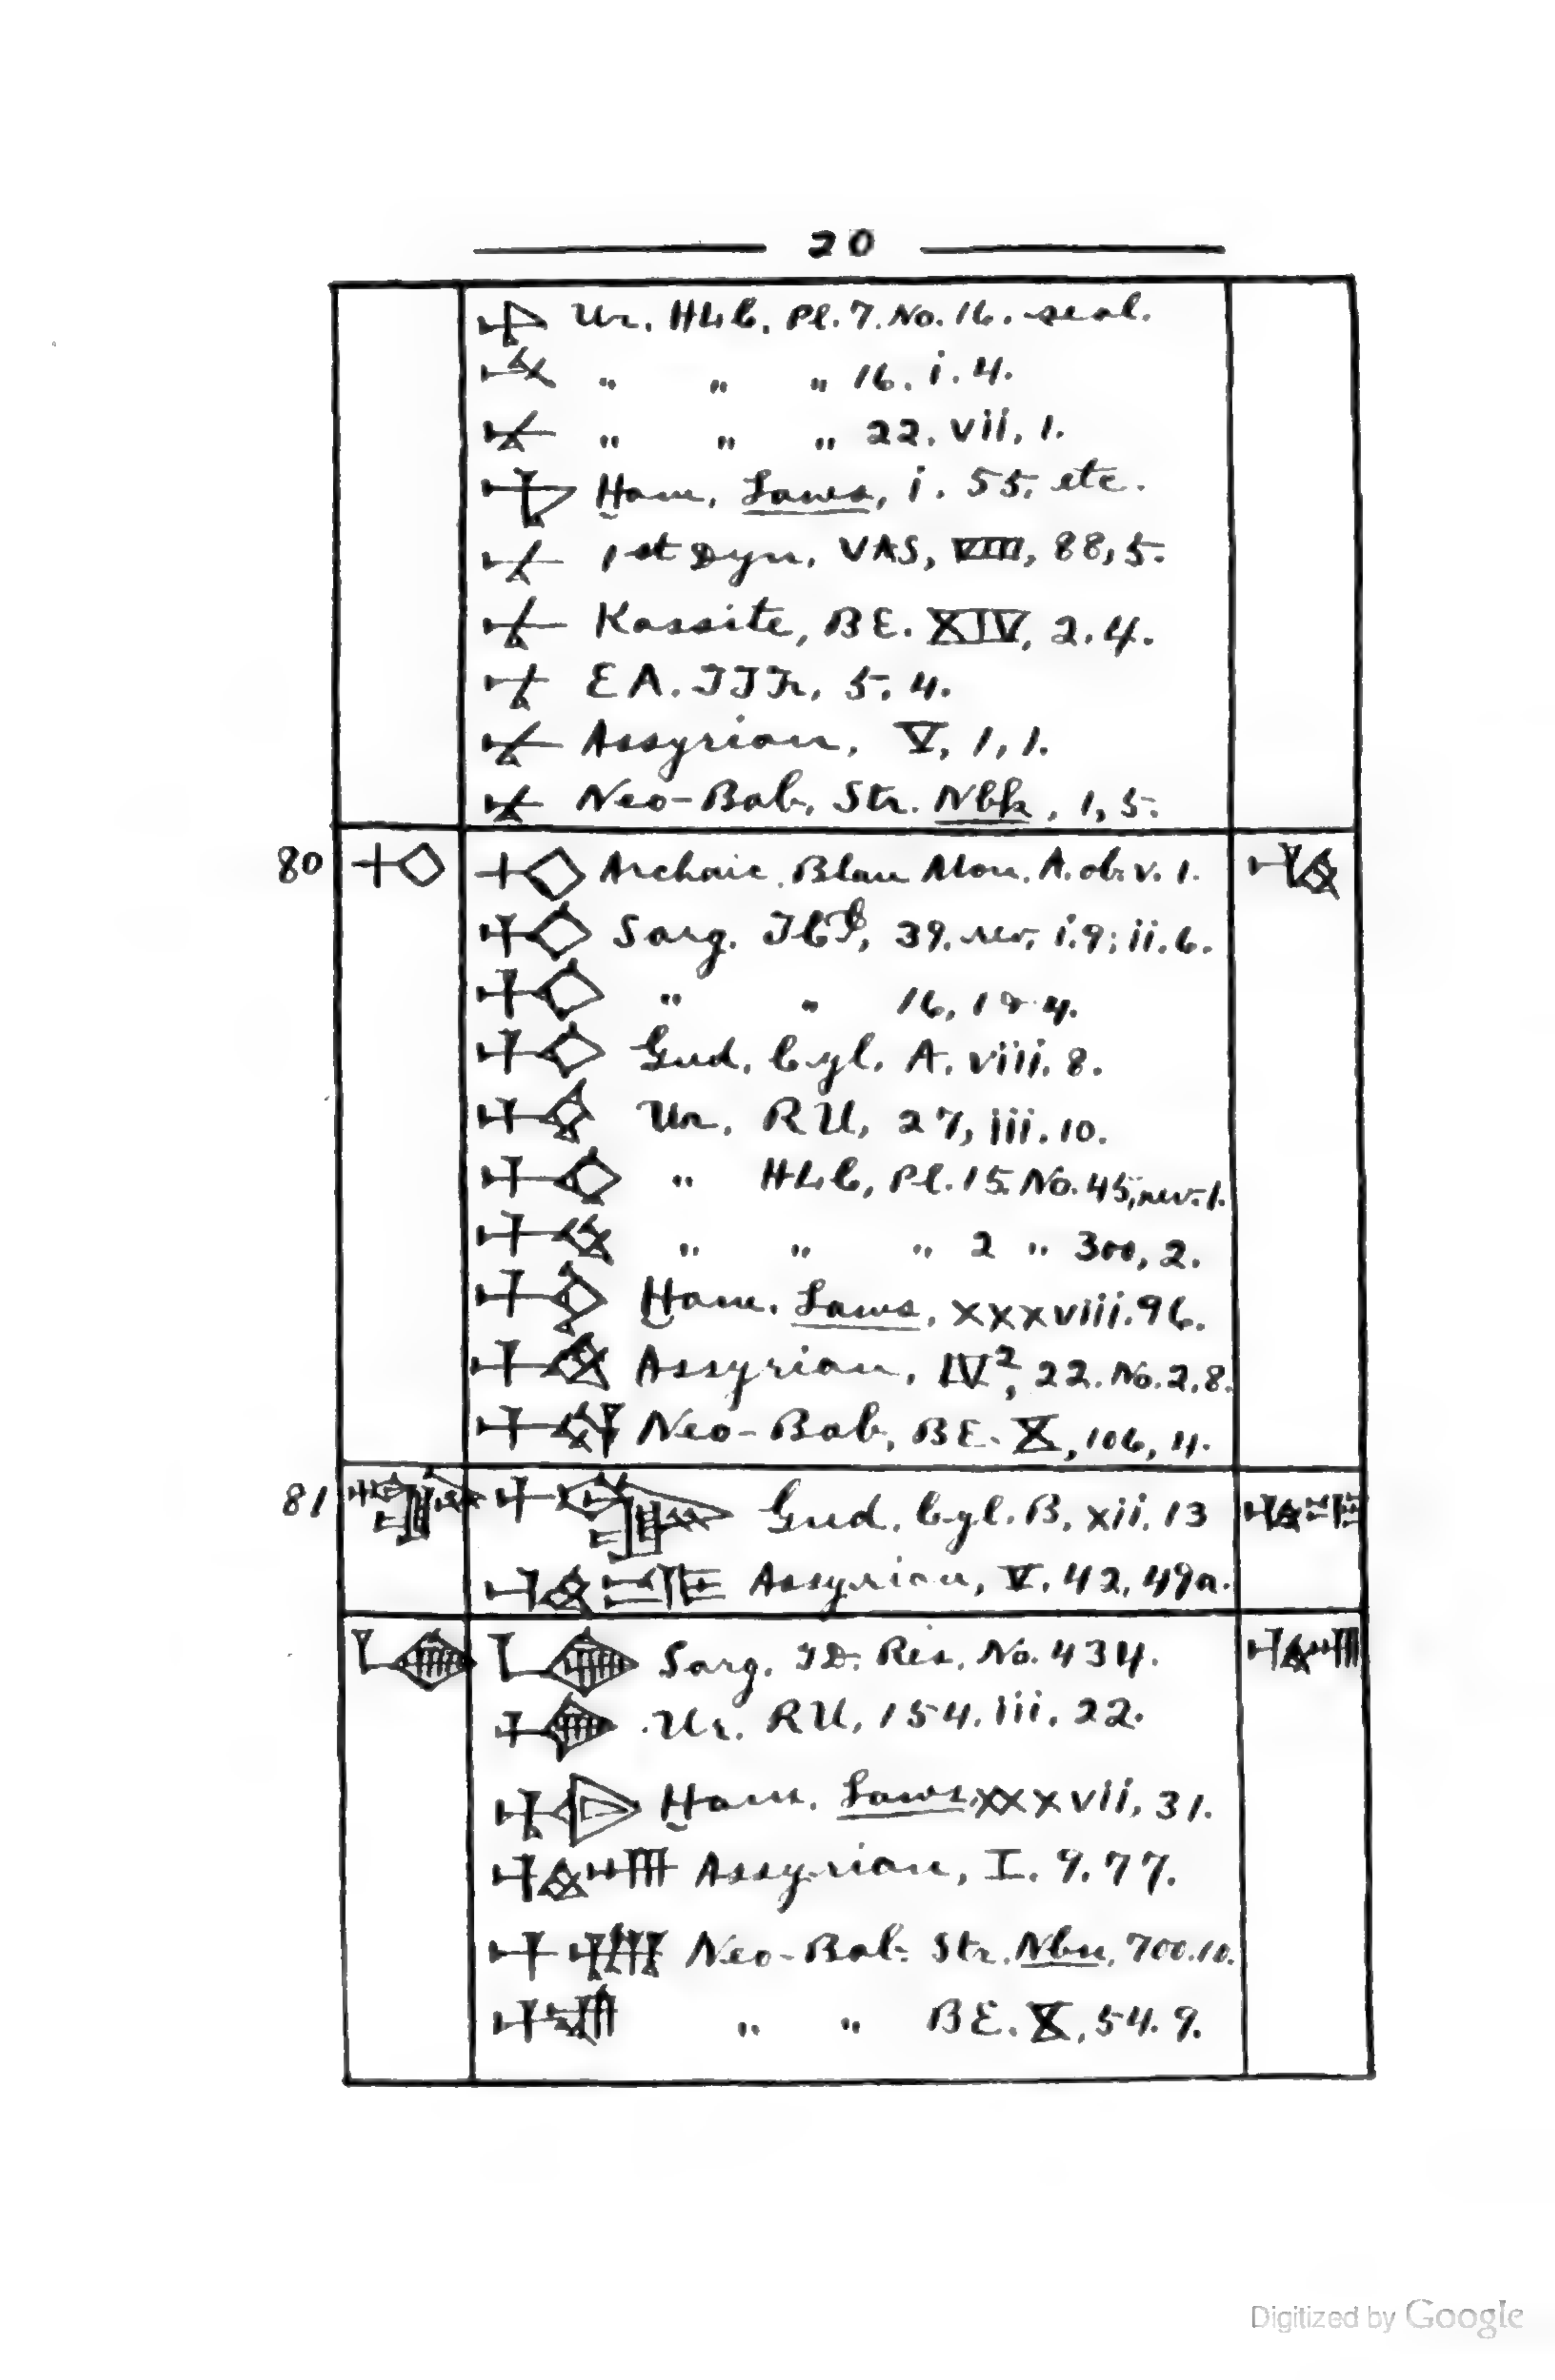 20
Ur. HLC, Pl. 7. No. 16. seal.
" " " 16. i. 4.
" " " 22. vii, 1.
Ḫam, Laws, i. 55, etc.
1st Dyn, VAS, VIII, 88, 5.
Kassite, BE. XIV, 2. 4.
EA. 5. 4.
Assyrian, V, 1, 1.
Neo-Bab, Str. Nbk, 1, 5.
80 Archaic, Blau Mon. A. obv. 1.
Sarg. 39. rev. i. 9; ii. 6.
" " 16, 1 & 4.
Gud. Cyl. A. viii. 8.
Ur. RU, 27, iii. 10.
" HLC, Pl. 15. No. 45, rev. 1.
" " " 2 " 300, 2.
Ḫam. Laws, xxxviii. 96.
Assyrian, IV², 22. No. 2, 8.
Neo-Bab, BE. X, 106, 4.
81 Gud. Cyl. B, xii. 13
Assyrian, V. 42, 49a.
Sarg. No. 434.
Ur. RU, 154. iii. 22.
Ḫam. Laws, xxxvii, 31.
Assyrian, I. 9. 77.
Neo-Bab. Str. Nbn, 700. 10.
" " BE. X, 54. 9.
Digitized by Google